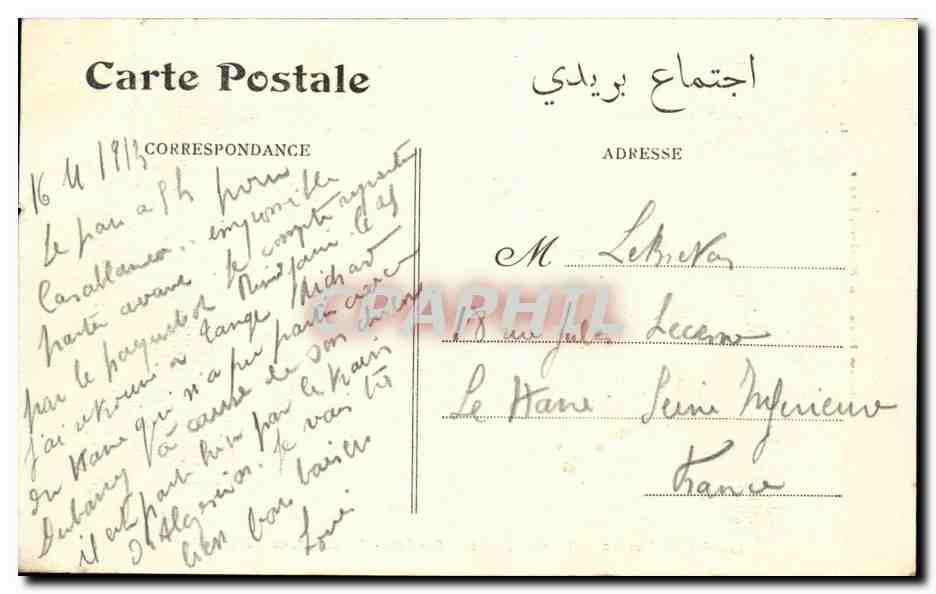 Carte Postale
اجتماع بريدي
CORRESPONDANCE
ADRESSE
16 4 1913
Le pars a 5 h pour
Casablanca .. impossible
partir avant. Je compte repartir
par le paquebot le 25
j'ai retrouvé a Tanger Richard
du Havre qui n'a pu partir avec
Dubarry à cause de son
il est parti hier par le train
d'Algesiras. Je vais tres
bien bons baisers
Louis
M LeBreton
18 rue Jules Lecesne
Le Havre Seine Inferieure
France
CPAPHIL